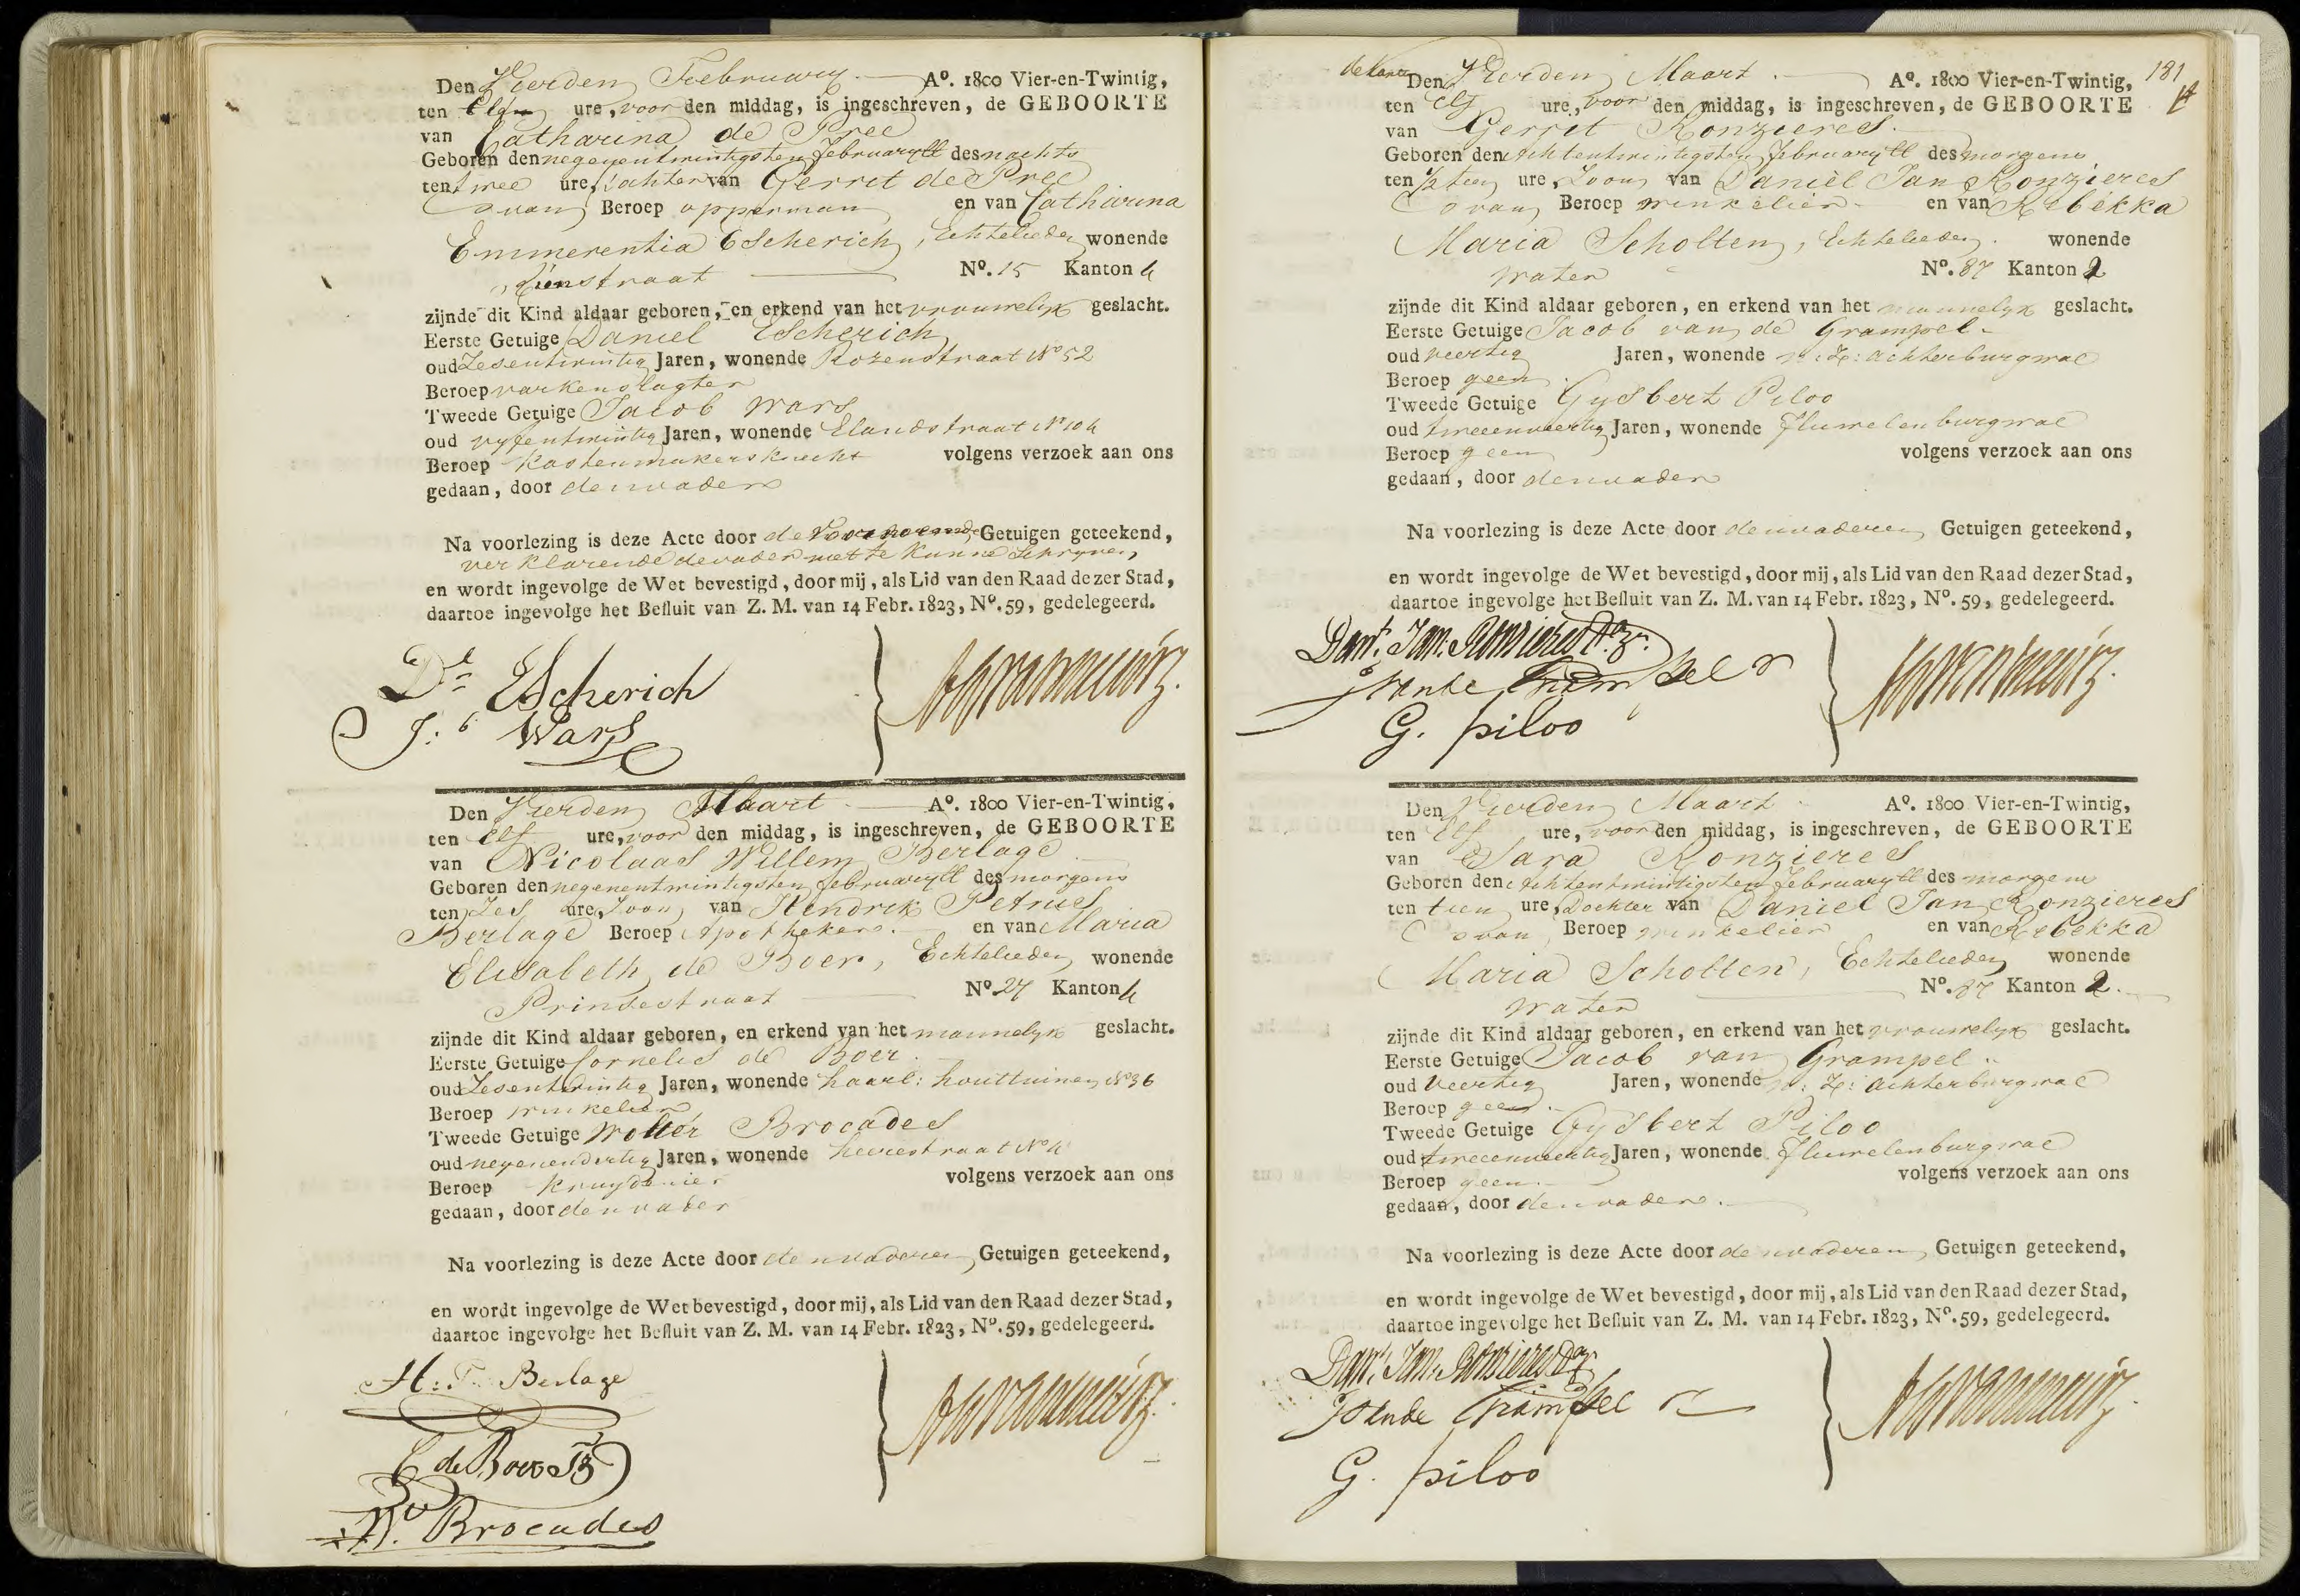 Den Vierden February A⁰. 1800 Vier-en-Twintig,
ten Elf ure, voor den middag, is ingeschreven, de GEBOORTE
van Catharina de Pree
Geboren den negenentwintigsten februaryll des nachts
ten twee ure, dochter van Gerret de Pree
Beroep opperman en van Catharina
Emmerentia Escherich, Echtelieden wonende
Lijnstraat N⁰. 15 Kanton 4
zijnde dit Kind aldaar geboren, en erkend van het vrouwelyk geslacht.
Eerste Getuige Daniel Escherich
oud Zesentwintig Jaren, wonende Rozenstraat N⁰ 52
Beroep varkenslagter
Tweede Getuige Jacob Wars
oud vyfentwintig Jaren, wonende Elandstraat N⁰ 104
Beroep Kastenmakersknecht volgens verzoek aan ons
gedaan, door den vader
Na voorlezing is deze Acte door de Getuigen geteekend,
verklarende de vader niet te kunne schryven,
en wordt ingevolge de Wet bevestigd, door mij, als Lid van den Raad dezer Stad,
daartoe ingevolge het Besluit van Z. M. van 14 Febr. 1823, N⁰. 59, gedelegeerd.
Dl Escherich
J:b Wars
Den Vierden Maart A⁰. 1800 Vier-en-Twintig,
ten Elf ure, voor den middag, is ingeschreven, de GEBOORTE
van Nicolaas Willem Berlage
Geboren den negenentwintigsten februaryll des morgens
ten Zes ure, Zoon van Hendrik Petrus
Berlage Beroep Apotheker en van Maria
Elisabeth de Boer, Echtelieden wonende
Prinsestraat N⁰. 27 Kanton 4
zijnde dit Kind aldaar geboren, en erkend van het mannelyk geslacht.
Eerste Getuige Cornelis de Boer
oud Zesentwintig Jaren, wonende haarl: houttuinen N⁰ 36
Beroep winkelier
Tweede Getuige Wolter Brocades
oud negenendertig Jaren, wonende heerestraat N⁰ 4
Beroep Kruydenier volgens verzoek aan ons
gedaan, door den vader
Na voorlezing is deze Acte door den vader en Getuigen geteekend,
en wordt ingevolge de Wet bevestigd, door mij, als Lid van den Raad dezer Stad,
daartoe ingevolge het Besluit van Z. M. van 14 Febr. 1823, N⁰. 59, gedelegeerd.
H: P. Berlage
C de Boer
W. Brocades
181
Den Vierden Maart A⁰. 1800 Vier-en-Twintig,
ten Elf ure, voor den middag, is ingeschreven, de GEBOORTE
van Gerrit Ronzieres
Geboren den achtentwintigsten februaryll des morgens
ten ½ tien ure, Zoon van Daniël Jan Ronzieres
Beroep winkelier en van Rebekka
Maria Scholten, Echtelieden wonende
Water N⁰. 87 Kanton 2
zijnde dit Kind aldaar geboren, en erkend van het mannelyk geslacht.
Eerste Getuige Jacob van de Grampel
oud veertig Jaren, wonende N: Z: achterburgwal
Beroep geen
Tweede Getuige Gysbert Piloo
oud tweeenveertig Jaren, wonende fluwelenburgwal
Beroep geen volgens verzoek aan ons
gedaan, door den vader
Na voorlezing is deze Acte door den vader en Getuigen geteekend,
en wordt ingevolge de Wet bevestigd, door mij, als Lid van den Raad dezer Stad,
daartoe ingevolge het Besluit van Z. M. van 14 Febr. 1823, N⁰. 59, gedelegeerd.
Danl. Jan. Ronzieres
G. piloo
Den Vierden Maart A⁰. 1800 Vier-en-Twintig,
ten Elf ure, voor den middag, is ingeschreven, de GEBOORTE
van Sara Ronzieres
Geboren den achtentwintigsten februaryll des morgens
ten tien ure, Dochter van Daniel Jan Ronzieres
Beroep winkelier en van Rebekka
Maria Scholten, Echtelieden wonende
Water N⁰. 87 Kanton 2
zijnde dit Kind aldaar geboren, en erkend van het vrouwelyk geslacht.
Eerste Getuige Jacob van Grampel
oud veertig Jaren, wonende N: Z: achterburgwal
Beroep geen
Tweede Getuige Gysbert Piloo
oud tweeenveertig Jaren, wonende fluwelenburgwal
Beroep geen volgens verzoek aan ons
gedaan, door den vader
Na voorlezing is deze Acte door den vader en Getuigen geteekend,
en wordt ingevolge de Wet bevestigd, door mij, als Lid van den Raad dezer Stad,
daartoe ingevolge het Besluit van Z. M. van 14 Febr. 1823, N⁰. 59, gedelegeerd.
Danl. Jan. Ronzieres
G. piloo